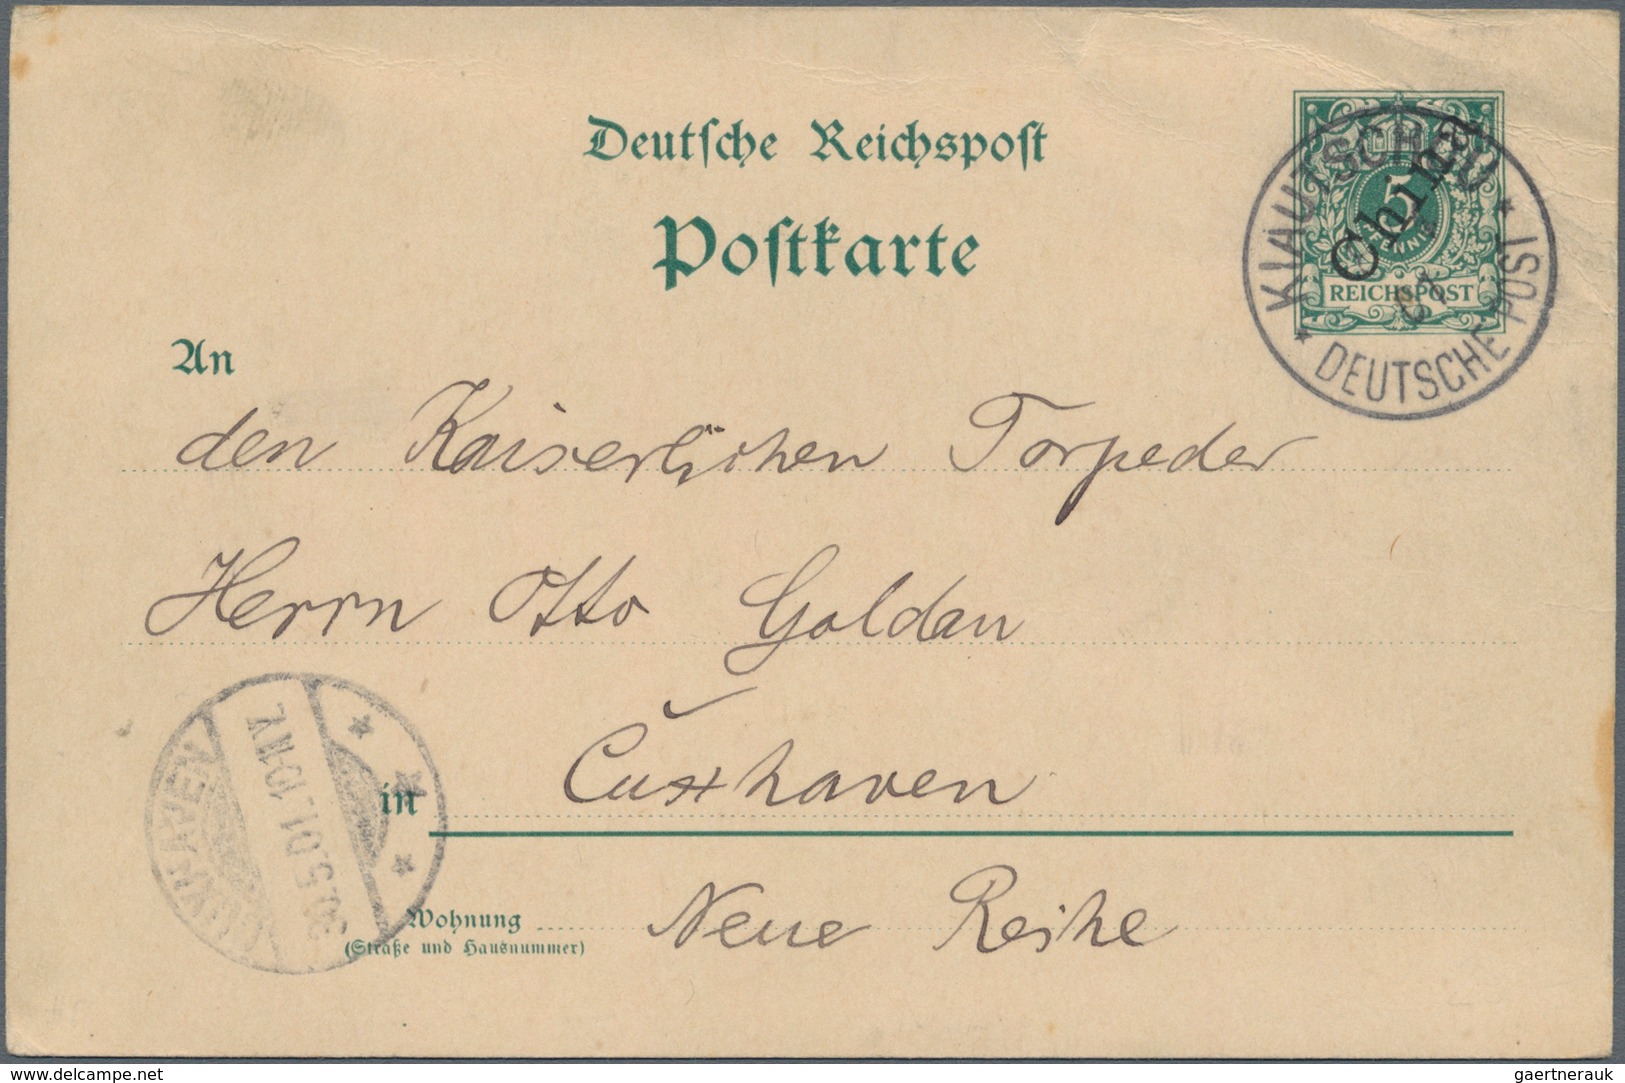 Deutsche Reichspost
Postkarte
5
PFENNIG
REICHSPOST
China
KIAUTSCHOU
DEUTSCHE POST
An
den Kaiserlichen Torpeder
Herrn Otto Goldan
in Cuxhaven
Wohnung Neue Reihe
(Straße und Hausnummer)
CUXHAVEN
5.01.10-11.V.
www.delcampe.net
gaertnerauk